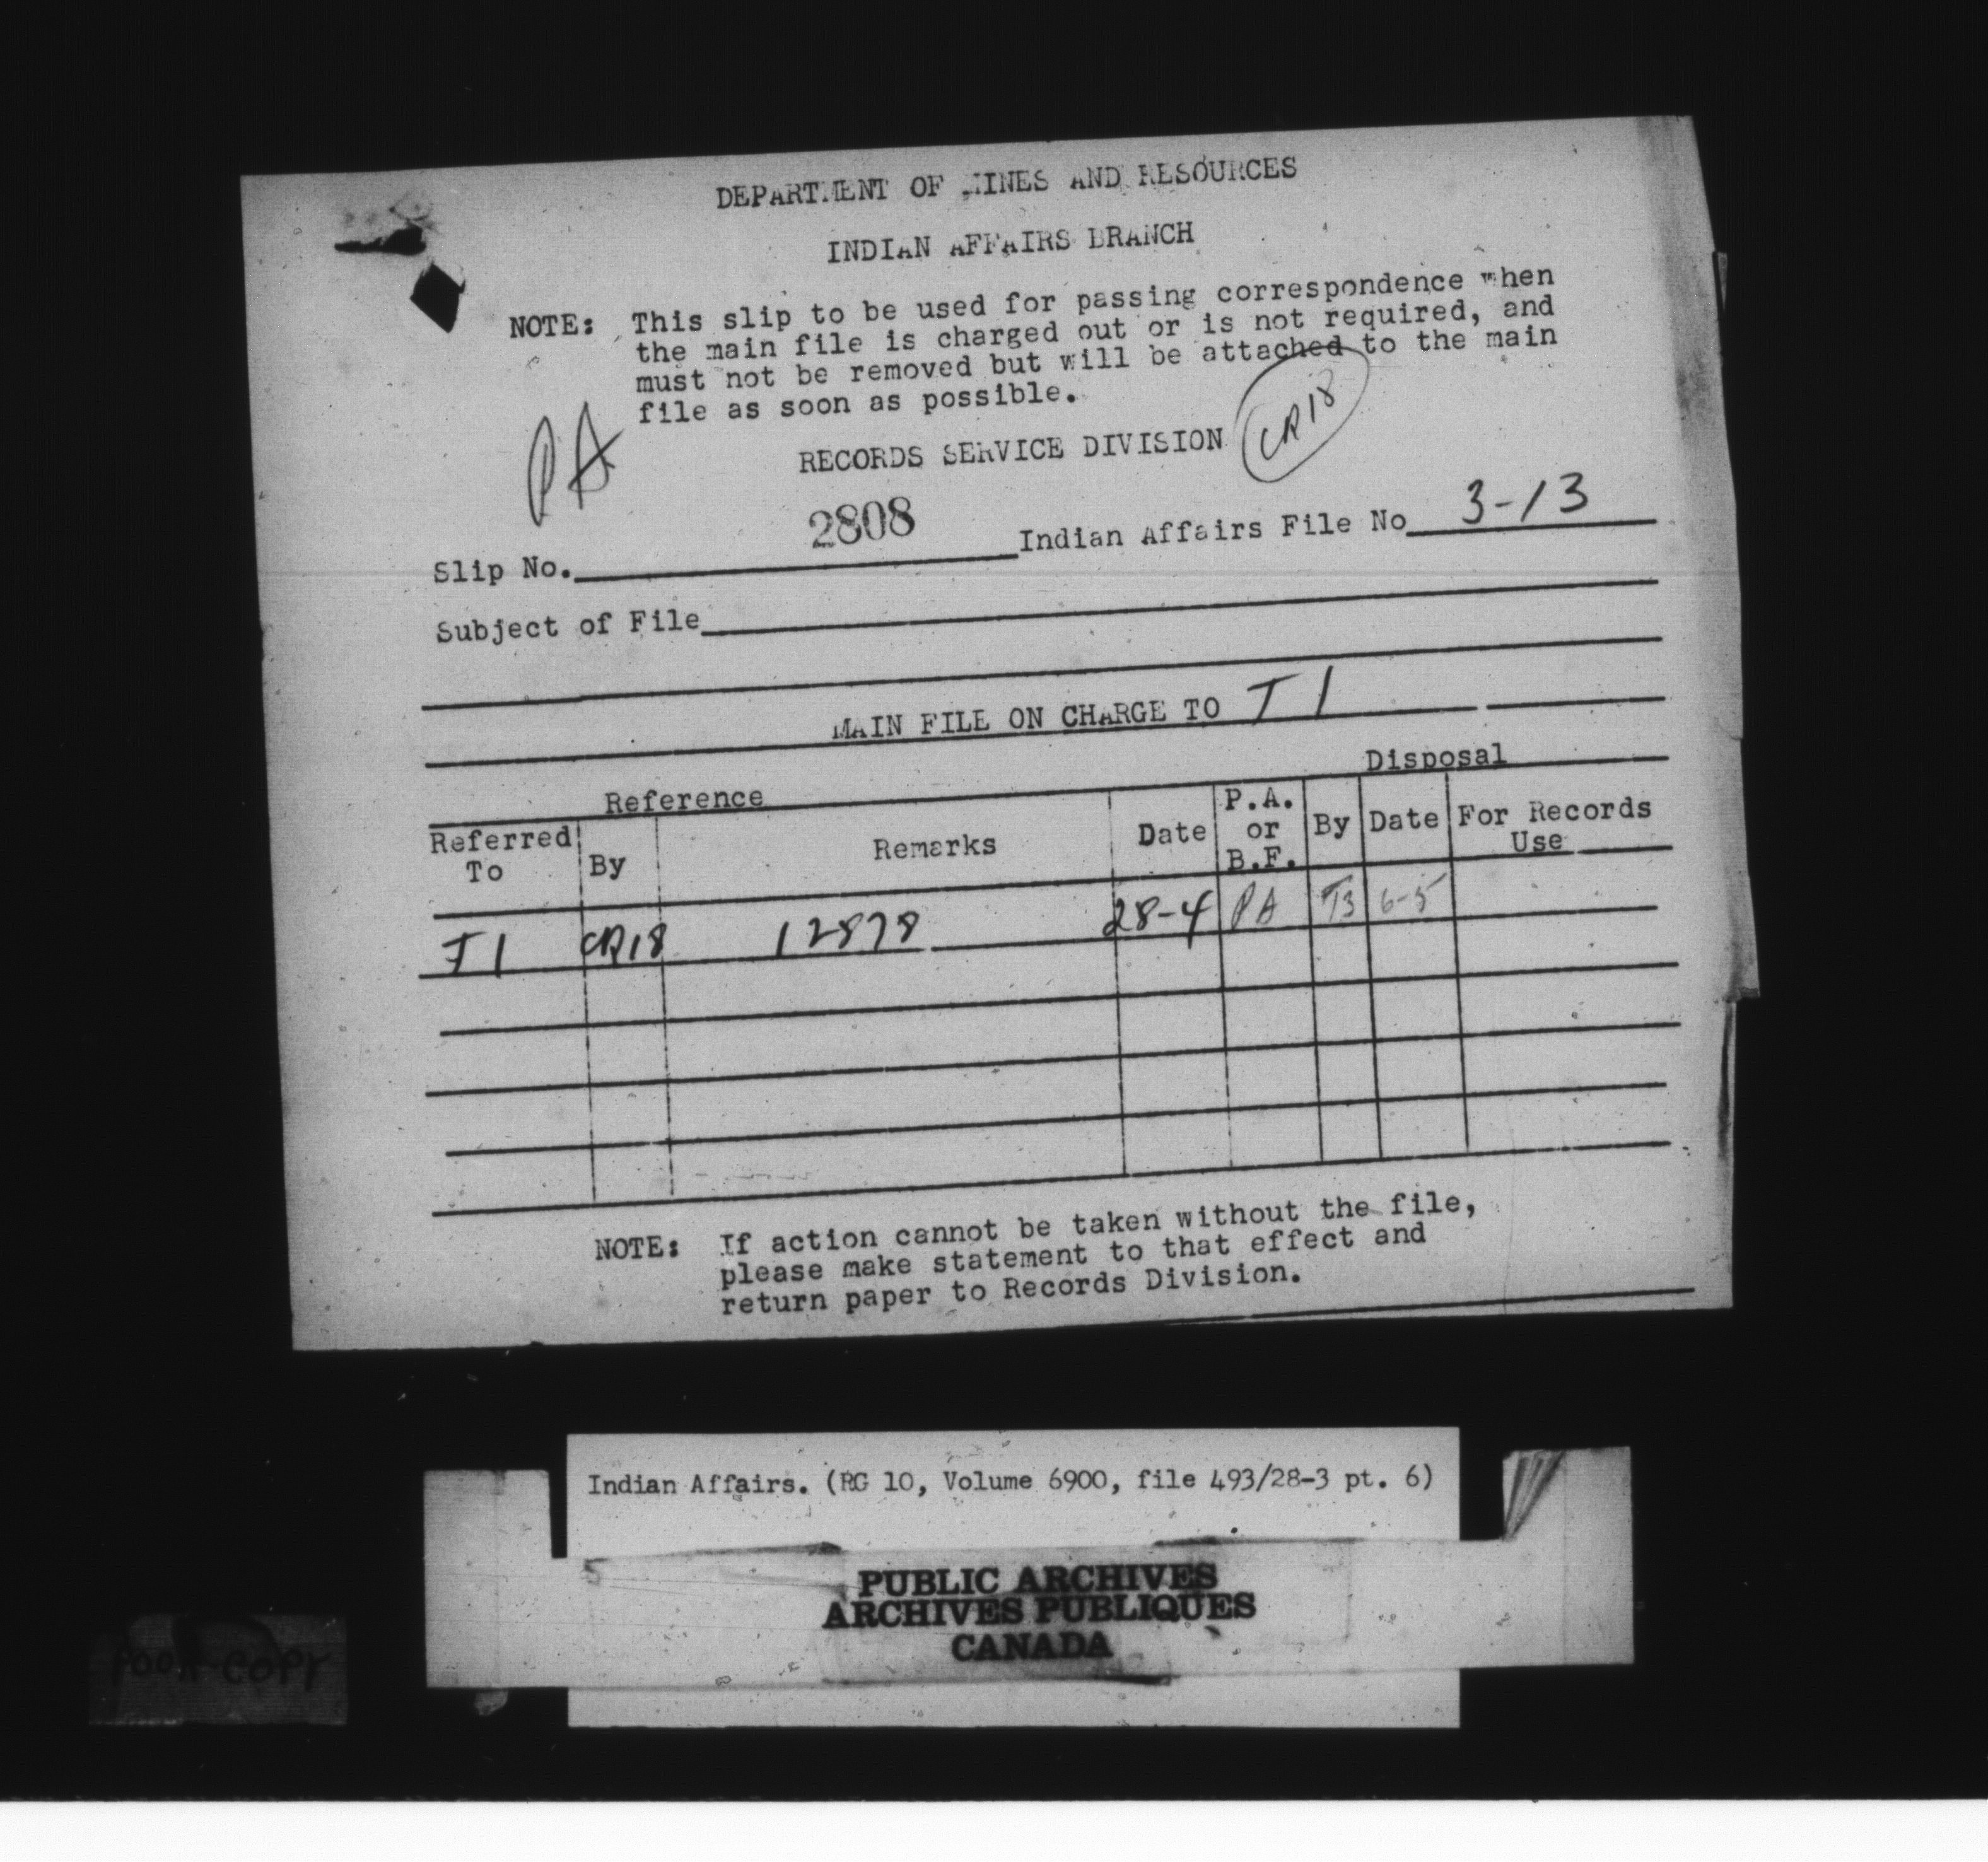 DEPARTMENT OF MINES AND RESOURCES
INDIAN AFFAIRS BRANCH
NOTE: This slip to be used for passing correspondence when
the main file is charged out or is not required, and
must not be removed but will be attached to the main
file as soon as possible.
PA
CR18
RECORDS SERVICE DIVISION
Slip No. 2808 Indian Affairs File No 3-13
Subject of File
MAIN FILE ON CHARGE TO T1
Reference Disposal
Referred To By Remarks Date P.A. or B.F. By Date For Records Use
T1 CR18 12878 28-4 PA T3 6-5
NOTE: If action cannot be taken without the file,
please make statement to that effect and
return paper to Records Division.
Indian Affairs. (RG 10, Volume 6900, file 493/28-3 pt. 6)
PUBLIC ARCHIVES
ARCHIVES PUBLIQUES
CANADA
POOR COPY